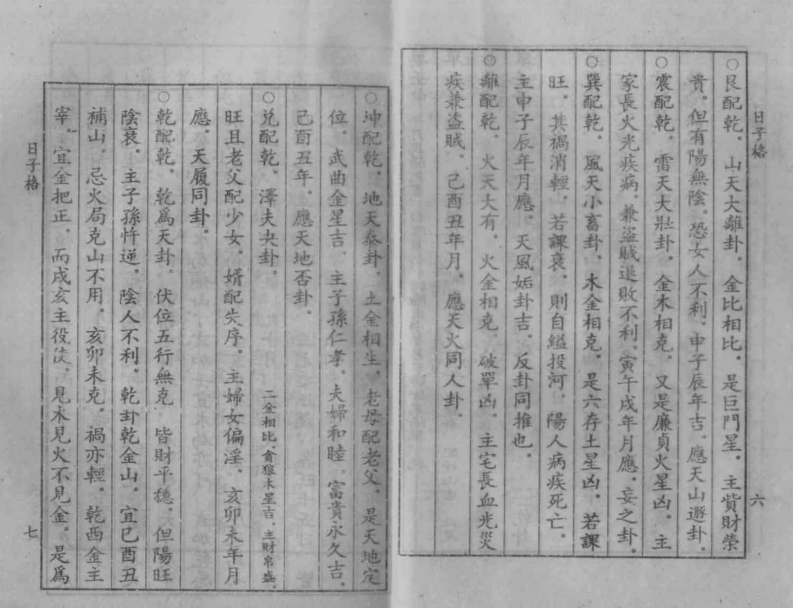 日子格
六
○艮配乾。山天大離卦。金比相比。是巨門星。主貲財榮
貴。但有陽無陰。恐女人不利。申子辰年吉。應天山遯卦。
○震配乾。雷天大壯卦。金木相克。又是廉貞火星凶。主
家長火光疾病。兼盜賊退敗不利。寅午戌年月應。妄之卦。
○巽配乾。風天小畜卦。木金相克。是六存土星凶。若課
旺。其禍消輕。若課衰。則自縊投河。陽人病疾死亡。
主申子辰年月應。天風姤卦吉。反卦同推也。
○離配乾。火天大有。火金相克。破單凶。主宅長血光災
疾兼盜賊。己酉丑年月。應天火同人卦。
○坤配乾。地天泰卦。土金相生。老母配老父。是天地定
位。武曲金星吉。主子孫仁孝。夫婦和睦。富貴永久吉。
己酉丑年。應天地否卦。
○兌配乾。澤夫夬卦。二金相比。貪狼木星吉。主財帛盛。
旺且老父配少女。婿配失序。主婦女偏淫。亥卯未年月
應。天履同卦。
○乾配乾。乾爲天卦。伏位五行無克。皆財平穩。但陽旺
陰衰。主子孫忤逆。陰人不利。乾卦乾金山。宜己酉丑
補山。忌火局克山不用。亥卯未克。禍亦輕。乾西金主
宰。宜金把正。而戌亥主役使。見木見火不見金。是爲
日子格
七